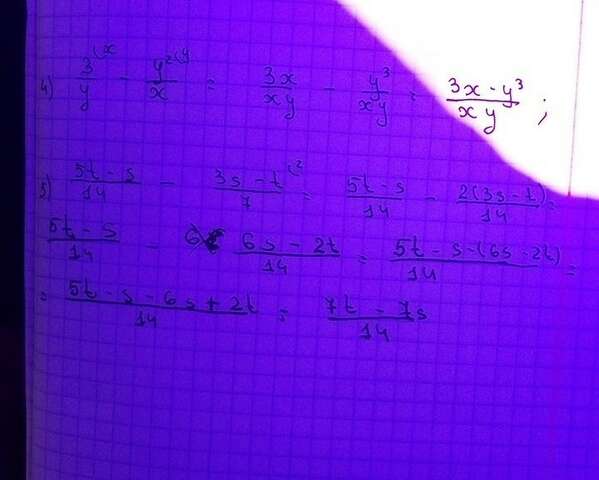 4) 3⁽ˣ/y - y²⁽ʸ/x = 3x/xy - y³/xy = 3x - y³/xy ;
5) 5t - s/14 - 3s - t⁽²/7 = 5t - s/14 - 2(3s - t)/14 =
5t - s/14 - 6s - 2t/14 = 5t - s - (6s - 2t)/14 =
= 5t - s - 6s + 2t/14 = 7t - 7s/14